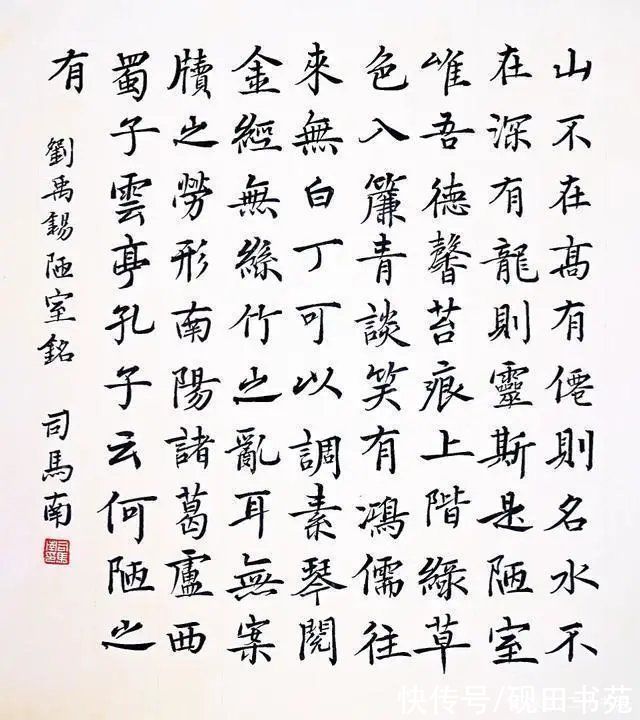 山不在髙有僊則名水不
在深有龍則靈斯是陋室
唯吾德馨苔痕上階綠草
色入簾青談笑有鴻儒往
來無白丁可以調素琴閱
金經無絲竹之亂耳無案
牘之勞形南陽諸葛廬西
蜀子雲亭孔子云何陋之
有
劉禹錫陋室銘 司馬南
快传号/砚田书苑